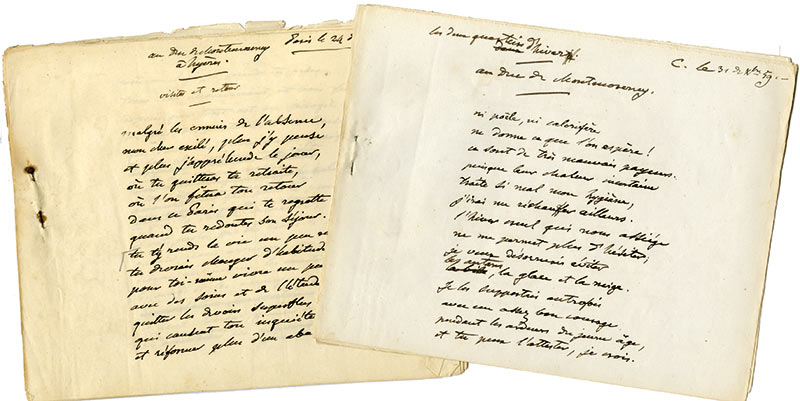 au Duc de Montmorency
à hyères.
Paris le 24 d
visites et retour
malgré les ennuis de l'absence,
mon cher exilé, plus j'y pense
et plus j'appréhende le jour,
où tu quitteras ta retraite,
où l'on fêtera ton retour
dans ce Paris qui te regrette
quand tu redoutes son séjour.
tu t'y rends la vie un peu r
tu devrais changer d'habitude
pour toi-même vivre un peu
avec des soins et de l'étude
quitter les devoirs superflus
qui causent ton inquiétu
et réformer plus d'un aba
les deux quartiers d'hiver
au Duc de Montmorency.
C. le 31 Xbre 59.
ni poële, ni calorifère
ne donne ce que l'on espère !
ce sont de très mauvais payeurs.
puisque leur chaleur incertaine
traite si mal mon hygiène,
j'irai me réchauffer ailleurs.
l'hiver seul qui nous assiège
ne me permet plus d'hésiter;
je veux désormais éviter
les autans, la glace et la neige.
Je les supportais autrefois
avec un assez bon courage
pendant les ardeurs du jeune âge,
et tu peux l'attester, je crois.